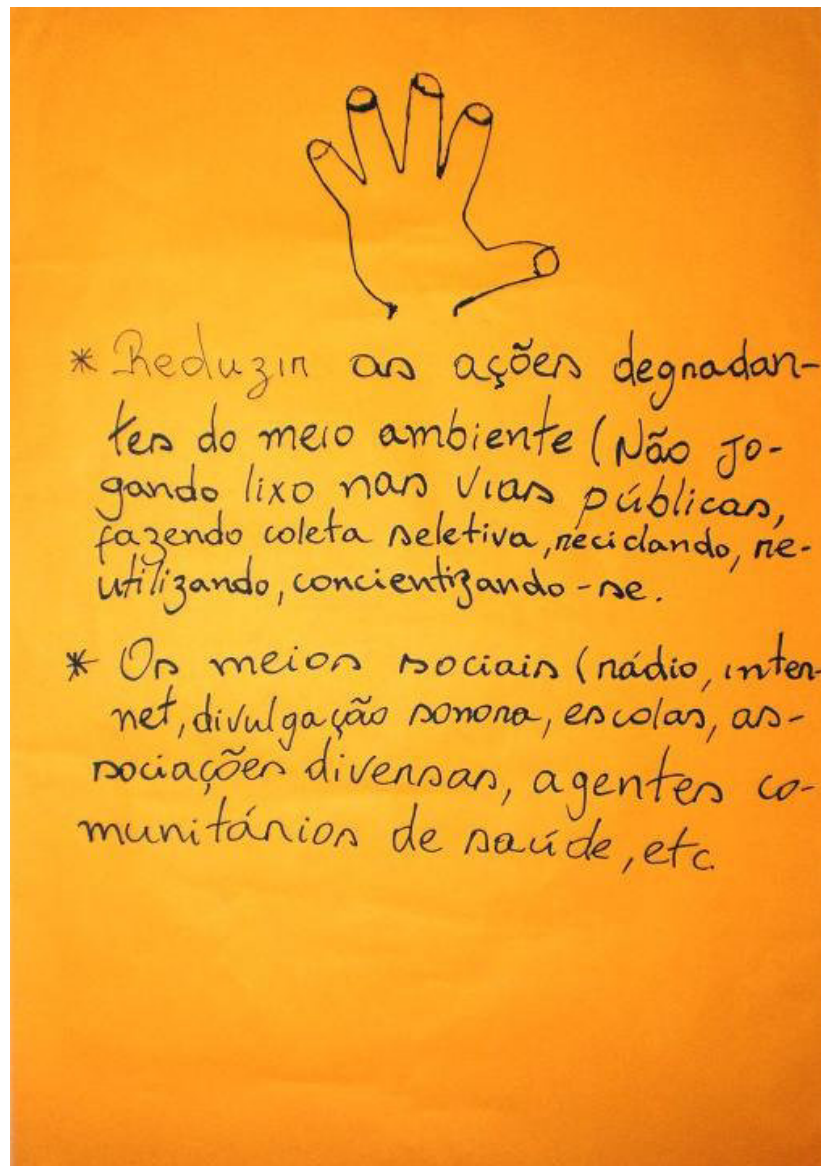 * Reduzir as ações degradan-
tes do meio ambiente (Não jo-
gando lixo nas vias públicas,
fazendo coleta seletiva, reciclando, re-
utilizando, concientizando-se.
* Os meios sociais (rádio, inter-
net, divulgação sonora, escolas, as-
sociações diversas, agentes co-
munitários de saúde, etc.